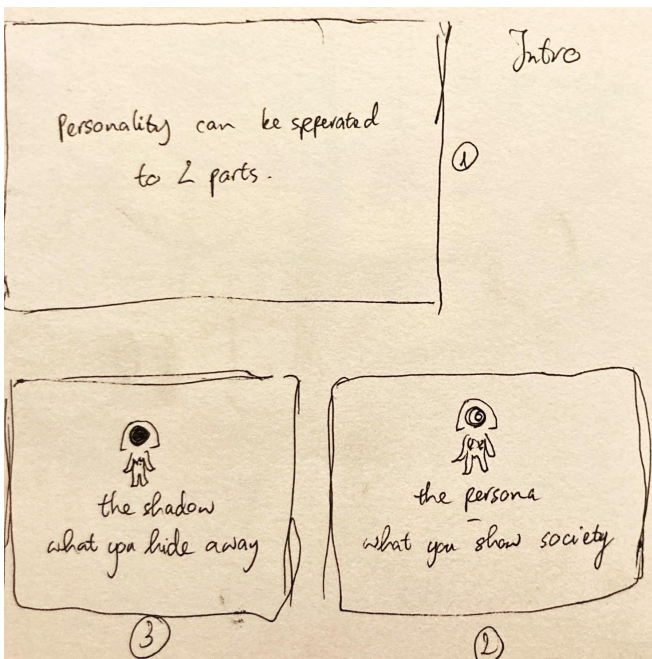 Intro
Personality can be sepperated
to 2 parts.
1
the shadow
what you hide away
3
the persona
what you show society
2